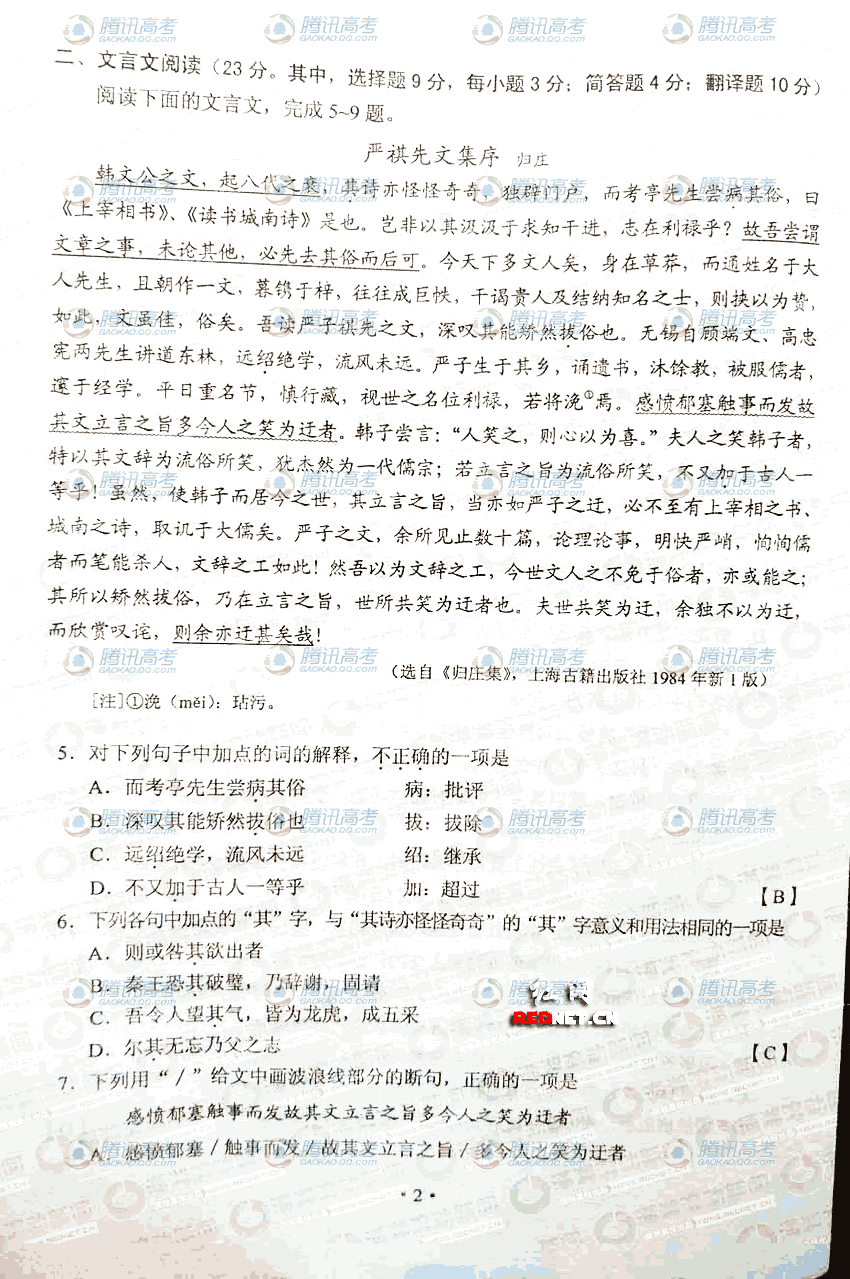 二、文言文阅读（23分。其中，选择题9分，每小题3分；简答题4分；翻译题10分）
阅读下面的文言文，完成5~9题。
严祺先文集序 归庄
韩文公之文，起八代之衰，其诗亦怪怪奇奇，独辟门户，而考亭先生尝病其俗，曰
《上宰相书》、《读书城南诗》是也。岂非以其汲汲于求知干进，志在利禄乎？故吾尝谓
文章之事，未论其他，必先去其俗而后可。今天下多文人矣，身在草莽，而通姓名于大
人先生，且朝作一文，暮镌于梓，往往成巨帙，干谒贵人及结纳知名之士，则挟以为贽，
如此，文虽佳，俗矣。吾读严子祺先之文，深叹其能矫然拔俗也。无锡自顾端文、高忠
宪两先生讲道东林，远绍绝学，流风未远。严子生于其乡，诵遗书，沐馀教，被服儒者，
邃于经学。平日重名节，慎行藏，视世之名位利禄，若将浼①焉。感愤郁塞触事而发故
其文立言之旨多今人之笑为迂者。韩子尝言：“人笑之，则心以为喜。”夫人之笑韩子者，
特以其文辞为流俗所笑，犹杰然为一代儒宗；若立言之旨为流俗所笑，不又加于古人一
等乎！虽然，使韩子而居今之世，其立言之旨，当亦如严子之迂，必不至有上宰相之书、
城南之诗，取讥于大儒矣。严子之文，余所见止数十篇，论理论事，明快严峭，恂恂儒
者而笔能杀人，文辞之工如此！然吾以为文辞之工，今世文人之不免于俗者，亦或能之；
其所以矫然拔俗，乃在立言之旨，世所共笑为迂者也。夫世共笑为迂，余独不以为迂，
而欣赏叹诧，则余亦迂甚矣哉！
（选自《归庄集》，上海古籍出版社1984年新1版）
［注］①浼（měi）：玷污。
5．对下列句子中加点的词的解释，不正确的一项是
A．而考亭先生尝病其俗 病：批评
B．深叹其能矫然拔俗也 拔：拔除
C．远绍绝学，流风未远 绍：继承
D．不又加于古人一等乎 加：超过
【B】
6．下列各句中加点的“其”字，与“其诗亦怪怪奇奇”的“其”字意义和用法相同的一项是
A．则或咎其欲出者
B．秦王恐其破璧，乃辞谢，固请
C．吾令人望其气，皆为龙虎，成五采
D．尔其无忘乃父之志
【C】
7．下列用“／”给文中画波浪线部分的断句，正确的一项是
感愤郁塞触事而发故其文立言之旨多今人之笑为迂者
A．感愤郁塞／触事而发／故其文立言之旨／多今人之笑为迂者
·2·
红网
REDNET.CN
腾讯高考
GAOKAO.QQ.COM